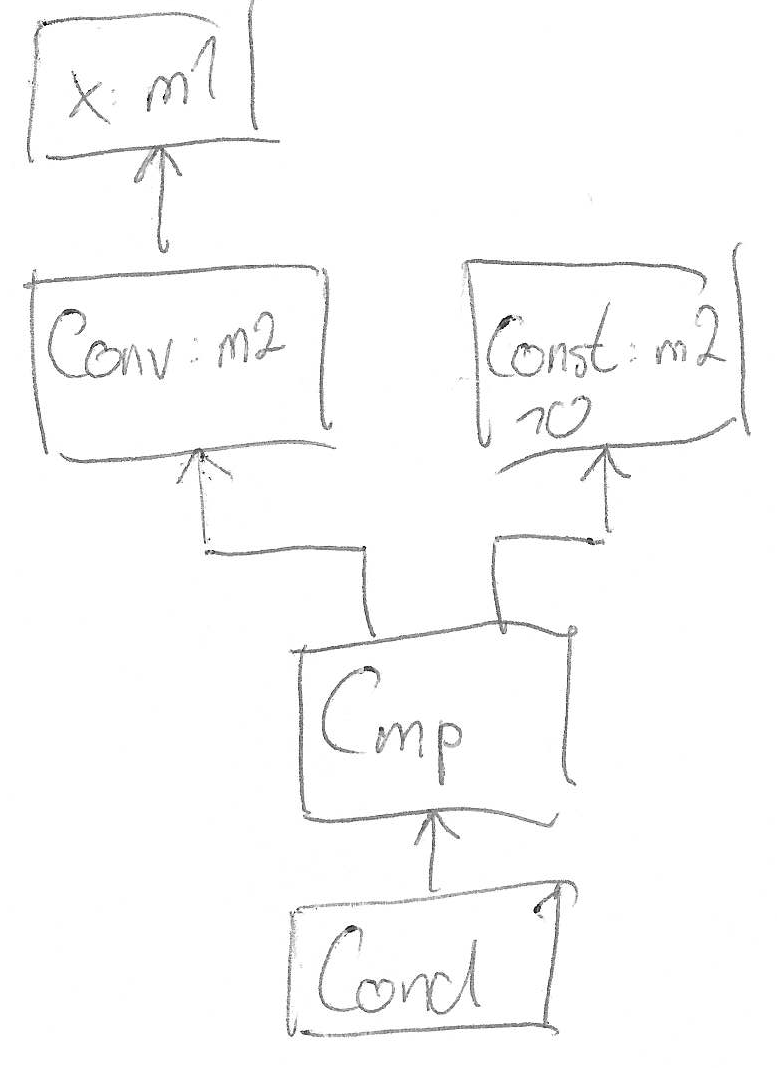 x: m1
Conv: m2
Const: m2
10
Cmp
Cond